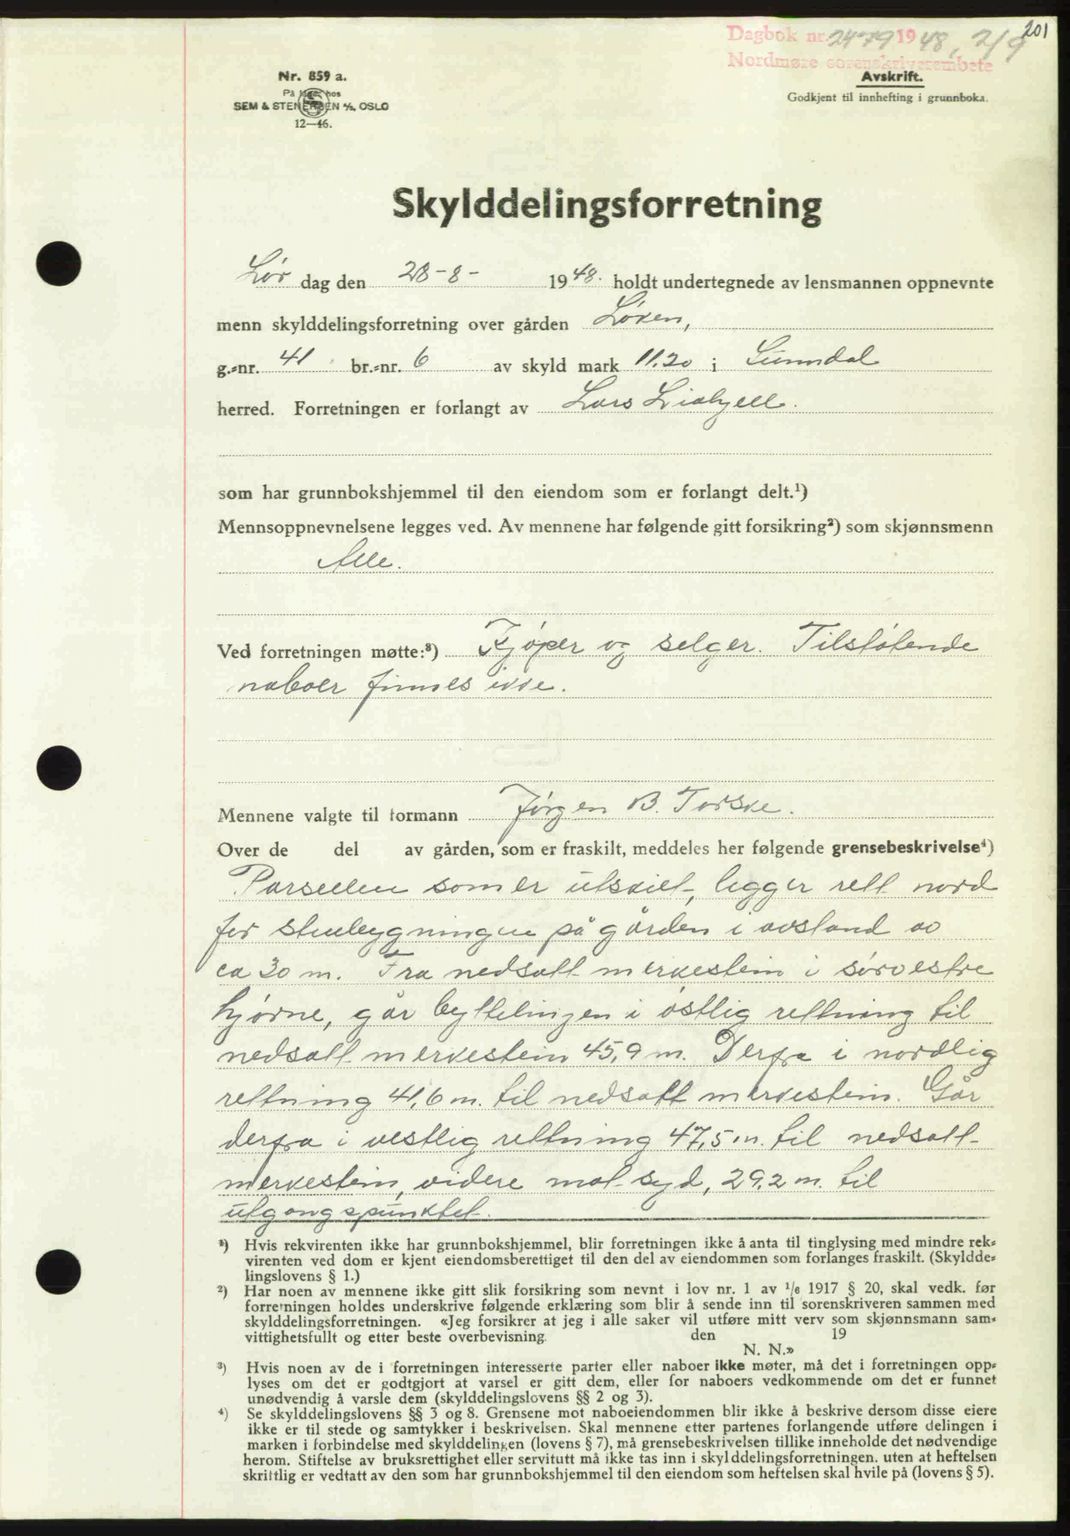 201
Dagbok nr. 2479 1948, 2/9
Nordmøre sorenskriverembete
Nr. 859 a.
På lager hos
SEM & STENERSEN A/S, OSLO
12—46.
Avskrift.
Godkjent til innhefting i grunnboka.
Skylddelingsforretning
Lør dag den 28-8- 1948. holdt undertegnede av lensmannen oppnevnte
menn skylddelingsforretning over gården Løken,
g.=nr. 41 br.=nr. 6 av skyld mark 11.20 i Sunndal
herred. Forretningen er forlangt av Lars Liahjell.
som har grunnbokshjemmel til den eiendom som er forlangt delt.¹)
Mennsoppnevnelsene legges ved. Av mennene har følgende gitt forsikring²) som skjønnsmenn
Alle.
Ved forretningen møtte:³) Kjøper og selger. Tilstøtende
naboer finnes ikke.
Mennene valgte til formann Jørgen B. Torske.
Over de del av gården, som er fraskilt, meddeles her følgende grensebeskrivelse⁴)
Parsellen som er utskilt, ligger rett nord
for stuebygningen på gården i avstand av
ca 30 m. Fra nedsatt merkestein i sørvestre
hjørne, går byttelinjen i østlig rettning til
nedsatt merkestein 45,9 m. Derfra i nordlig
rettning 41,6 m. til nedsatt merkestein. Går
derfra i vestlig rettning 47,5 m. til nedsatt
merkestein, videre mot syd, 29,2 m. til
utgangspunktet.
¹) Hvis rekvirenten ikke har grunnbokshjemmel, blir forretningen ikke å anta til tinglysing med mindre rek=
virenten ved dom er kjent eiendomsberettiget til den del av eiendommen som forlanges fraskilt. (Skyldde=
lingslovens § 1.)
²) Har noen av mennene ikke gitt slik forsikring som nevnt i lov nr. 1 av 1/6 1917 § 20, skal vedk. før
forretningen holdes underskrive følgende erklæring som blir å sende inn til sorenskriveren sammen med
skylddelingsforretningen. «Jeg forsikrer at jeg i alle saker vil utføre mitt verv som skjønnsmann sam=
vittighetsfullt og etter beste overbevisning. den 19
N. N.»
³) Hvis noen av de i forretningen interesserte parter eller naboer ikke møter, må det i forretningen opp=
lyses om det er godtgjort at varsel er gitt dem, eller for naboers vedkommende om det er funnet
unødvendig å varsle dem (skylddelingslovens §§ 2 og 3).
⁴) Se skylddelingslovens §§ 3 og 8. Grensene mot naboeiendommen blir ikke å beskrive dersom disse eiere
ikke er til stede og samtykker i beskrivelsen. Skal mennene etter partenes forlangende utføre delingen i
marken i forbindelse med skylddelingen (lovens § 7), må grensebeskrivelsen tillike inneholde det nødvendige
herom. Stiftelse av bruksrettighet eller servitutt må ikke tas inn i skylddelingsforretningen. uten at heftelsen
skriftlig er vedtatt av den som har grunnbokshjemmel til den eiendom som heftelsen skal hvile på (lovens § 5).